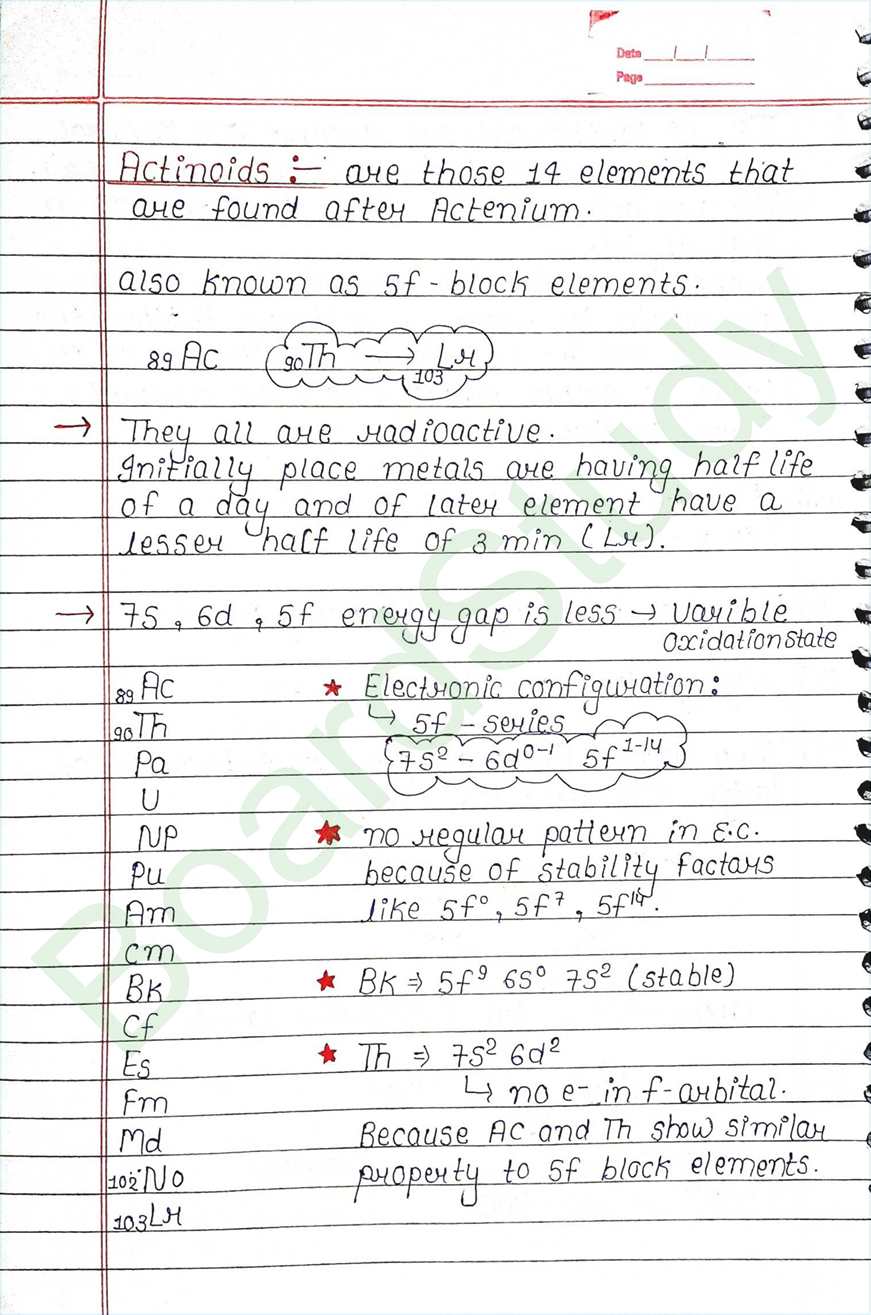 Date __/__/__
Page ________
Actinoids :- are those 14 elements that
are found after Actenium.
also known as 5f - block elements.
₈₉Ac ₉₀Th ⟶ ₁₀₃Lr
→ They all are radioactive.
Initially place metals are having half life
of a day and of later element have a
lesser half life of 3 min (Lr).
→ 7S , 6d , 5f energy gap is less → varible
oxidation state
₈₉Ac ★ Electronic configuration :
₉₀Th ↳ 5f - series
Pa 7S² - 6d⁰⁻¹ 5f¹⁻¹⁴
U
NP ★ no regular pattern in E.C.
Pu because of stability factars
Am like 5f⁰, 5f⁷, 5f¹⁴.
Cm
BK ★ BK ⇒ 5f⁹ 6S⁰ 7S² (stable)
Cf
Es ★ Th ⇒ 7S² 6d²
Fm ↳ no e- in f-arbital.
Md Because AC and Th show similar
₁₀₂No property to 5f block elements.
₁₀₃Lr
BoardStudy